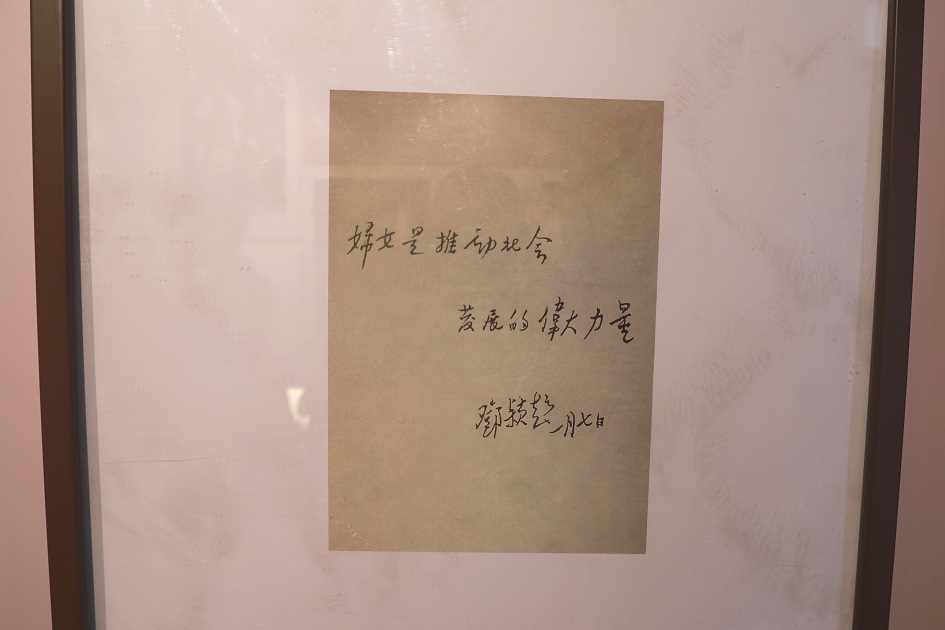 婦女是推动社会
發展的偉大力量
鄧颖超 一月七日